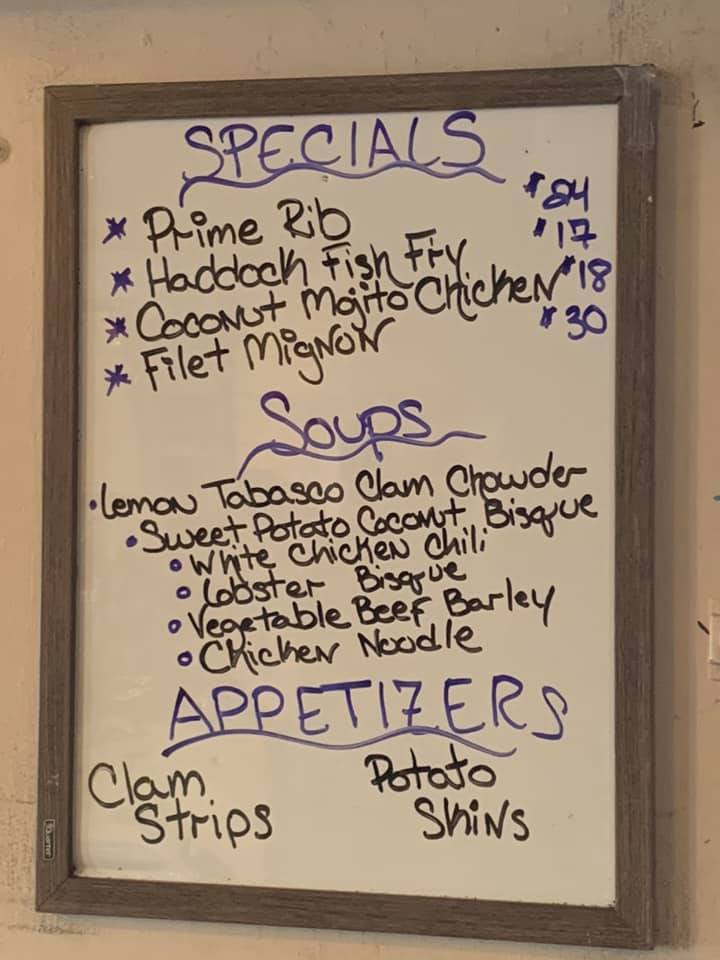 SPECIALS
* Prime Rib $24
* Haddock Fish Fry $17
* Coconut Mojito Chicken $18
* Filet Mignon $30
Soups
• Lemon Tabasco Clam Chowder
• Sweet Potato Coconut Bisque
• White Chicken Chili
• Lobster Bisque
• Vegetable Beef Barley
• Chicken Noodle
APPETIZERS
Clam Potato
Strips Skins